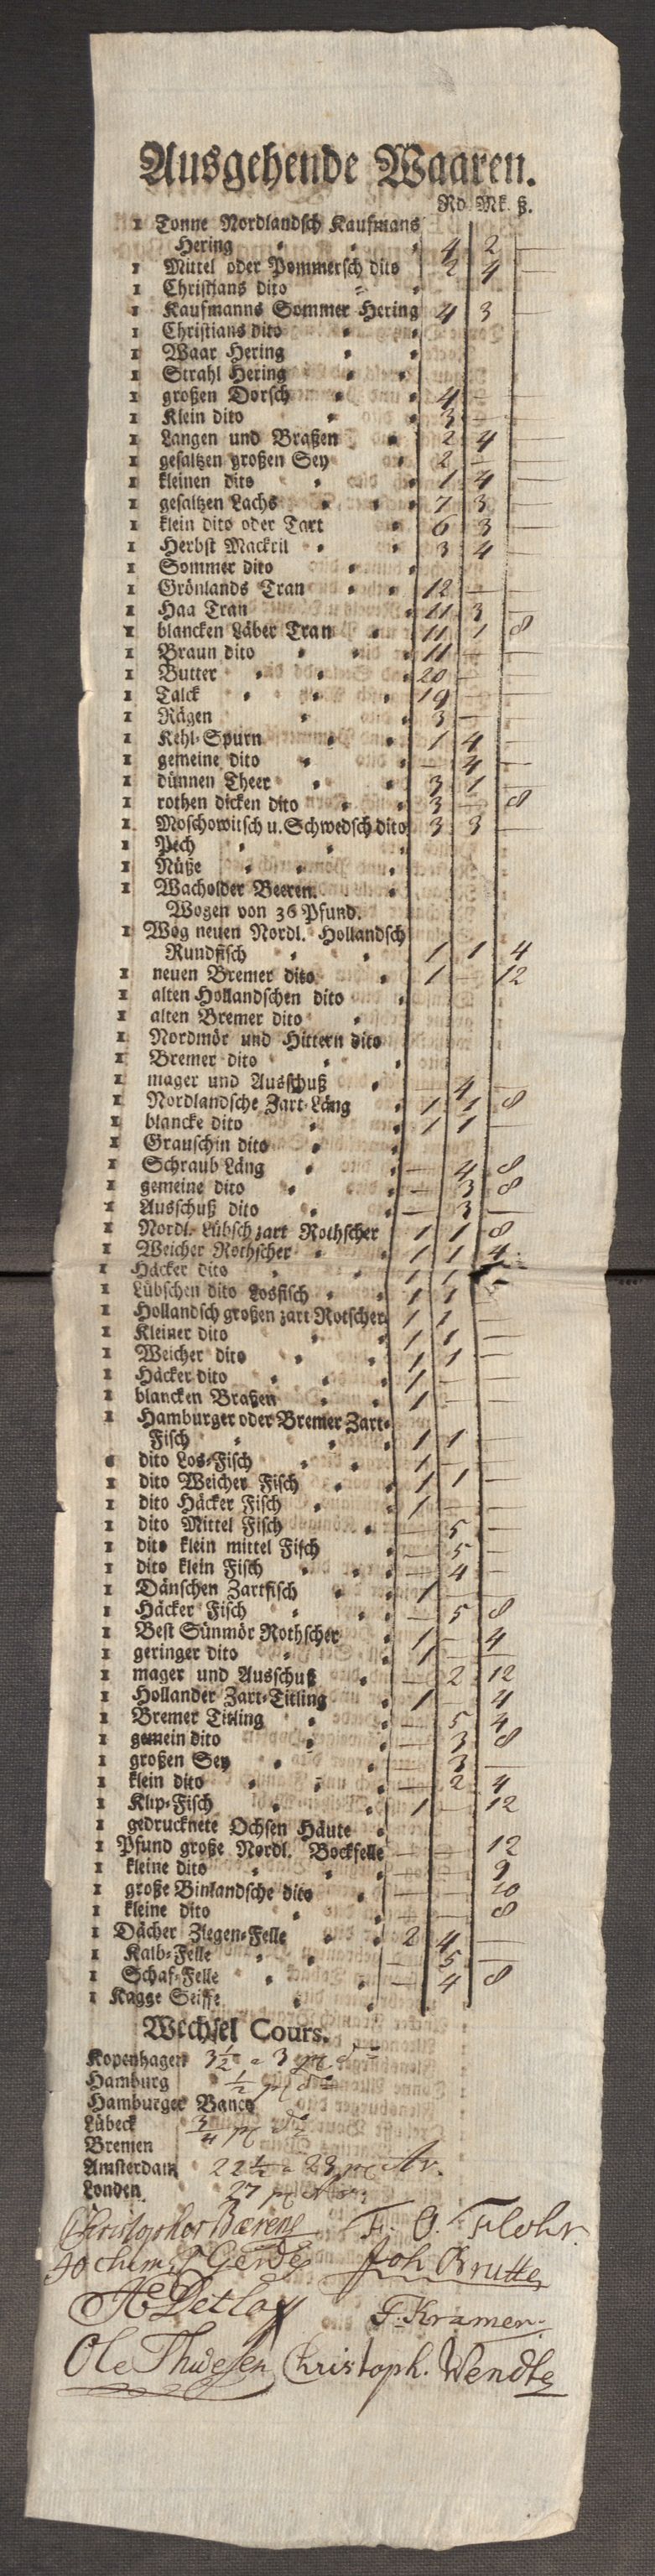 Ausgehende Waaren.
Rd. Mk. ß.
1 Tonne Nordlandsch Kaufmans
Hering 4 2 —
1 Mittel oder Pommersch dito 2 4 —
1 Christians dito
1 Kaufmanns Sommer Hering 4 3 —
1 Christians dito
1 Waar Hering
1 Strahl Hering
1 großen Dorsch 4 — —
1 Klein dito 3 — —
1 Langen und Braßen 2 4 —
1 gesaltzen großen Sey 2 — —
1 kleinen dito 1 4 —
1 gesaltzen Lachs 7 3 —
1 klein dito oder Tart 6 3 —
1 Herbst Mackril 3 4 —
1 Sommer dito
1 Grönlands Tran 12 — —
1 Haa Tran 11 3 —
1 blancken Läber Tran 11 1 8
1 Braun dito 11 — —
1 Butter 20 — —
1 Talck 19 — —
1 Rägen 3 — —
1 Kehl-Spurn 1 4 —
1 gemeine dito — 4 —
1 dünnen Theer 3 1 —
1 rothen dicken dito 3 — 8
1 Moschowitsch u. Schwedsch dito 3 3 —
1 Pech
1 Nüße
1 Wacholder Beeren.
Wogen von 36 Pfund.
1 Wog neuen Nordl. Hollandsch
Rundfisch 1 1 4
1 neuen Bremer dito 1 — 12
1 alten Hollandschen dito
1 alten Bremer dito
1 Nordmör und Hittern dito
1 Bremer dito
1 mager und Ausschuß — 4 —
1 Nordlandsche Zart-Läng 1 1 8
1 blancke dito 1 1 —
1 Grauschin dito
1 Schraub Läng — 4 8
1 gemeine dito — 3 8
1 Ausschuß dito — 3 —
1 Nordl. Lübsch zart Rothscher 1 1 8
1 Weicher Rothscher 1 1 4
1 Häcker dito 1 1
1 Lübschen dito Losfisch 1 1 —
1 Hollandsch großen zart Rotscher 1 1 —
1 Kleiner dito 1 1 —
1 Weicher dito 1 1 —
1 Häcker dito 1 — —
1 blancken Braßen 1 — —
1 Hamburger oder Bremer Zart-
Fisch 1 1 —
1 dito Los-Fisch 1 — —
1 dito Weicher Fisch 1 1 —
1 dito Häcker Fisch 1 — —
1 dito Mittel Fisch — 5 —
1 dito klein mittel Fisch — 5 —
1 dito klein Fisch — 4 —
1 Dänschen Zartfisch 1 — —
1 Häcker Fisch — 5 8
1 Best Sünmör Rothscher 1 — 4
1 geringer dito 1 — —
1 mager und Ausschuß — 2 12
1 Hollander Zart-Titling 1 — 4
1 Bremer Titling — 5 4
1 gemein dito — 3 8
1 großen Sey — 3 —
1 klein dito — 2 4
1 Klip-Fisch 1 — 12
1 gedrucknete Ochsen Häute
1 Pfund große Nordl. Bockfelle — — 12
1 kleine dito — — 9
1 große Binlandsche dito — — 10
1 kleine dito — — 8
1 Dächer Ziegen-Felle 2 4 —
1 Kalb-Felle — 5 —
1 Schaf-Felle — 4 8
1 Kagge Seiffe
Wechsel Cours.
Kopenhagen 3½ a 3 pC
Hamburg ½ pC
Hamburger Banco
Lübeck ¾ pC
Bremen
Amsterdam 22½ a 23 pC
London 27 pC
Christopher Bærens F. O. Flohr.
Jochim Gerdes Joh Brutte
Detlof F. Kramer.
Ole Thuesen Christoph. Wendte